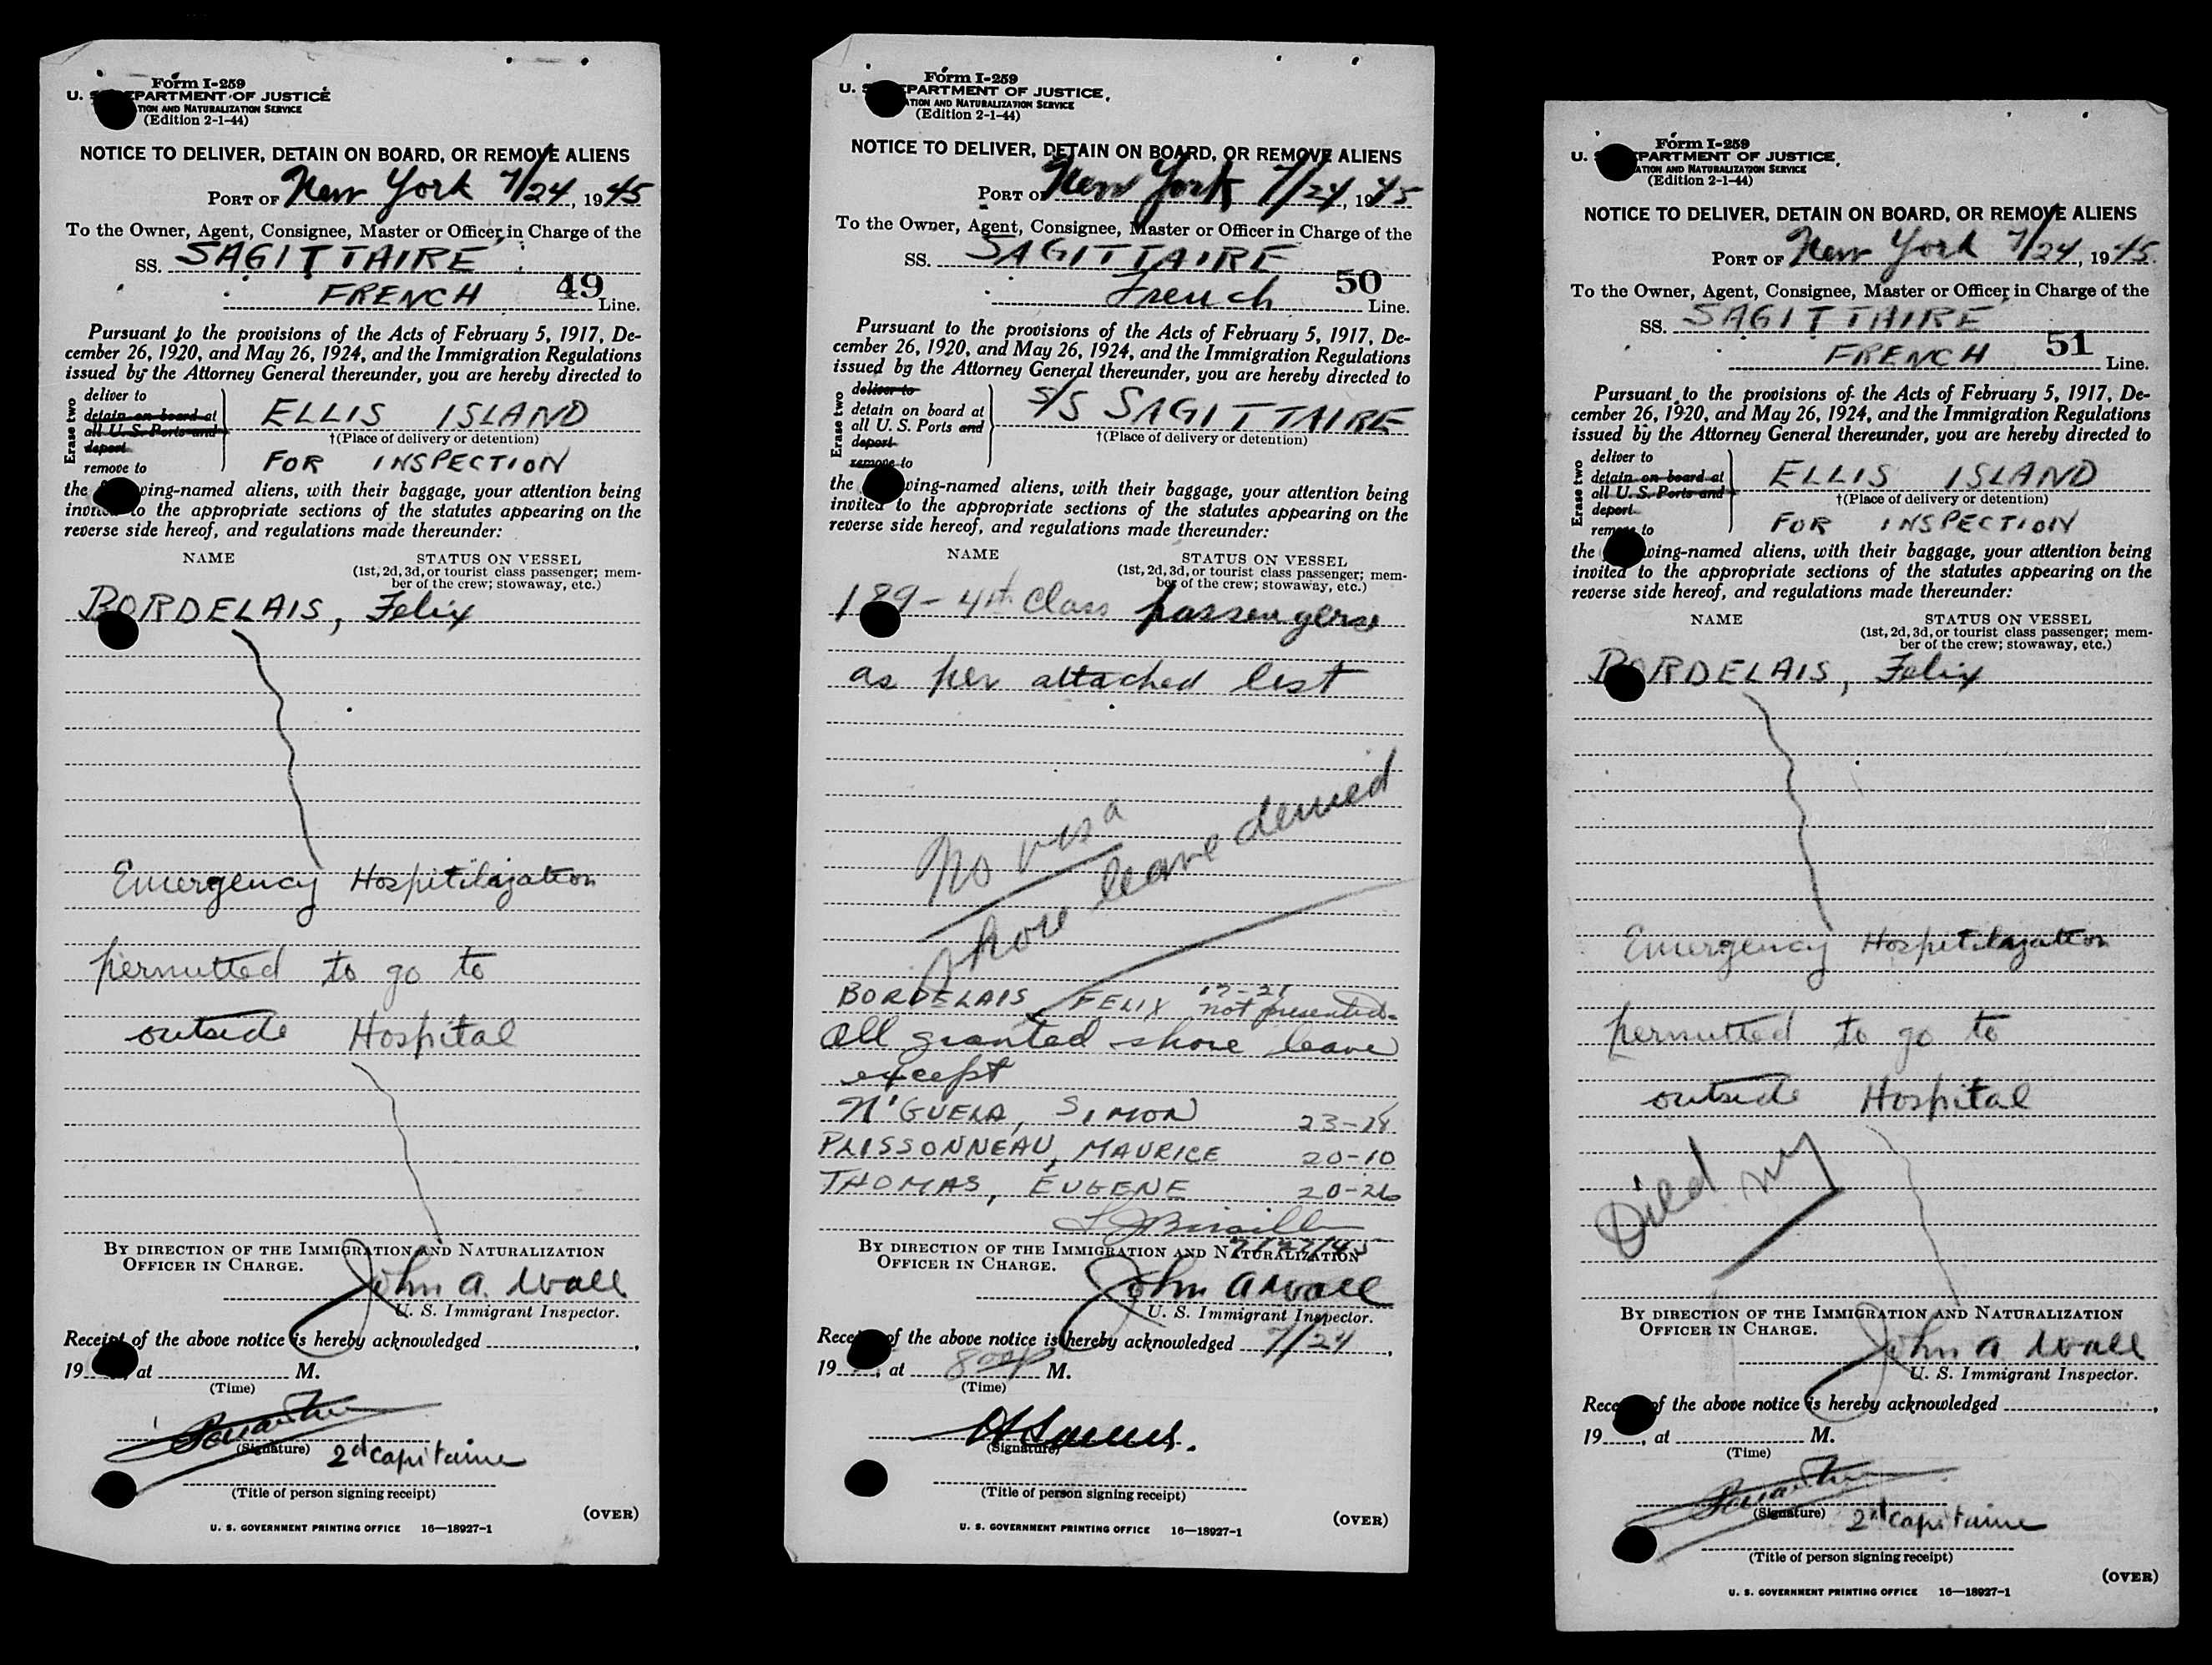 Form I-259
U. S. DEPARTMENT OF JUSTICE
TION AND NATURALIZATION SERVICE
(Edition 2-1-44)
NOTICE TO DELIVER, DETAIN ON BOARD, OR REMOVE ALIENS
PORT OF New York 7/24, 1945
To the Owner, Agent, Consignee, Master or Officer in Charge of the
SS. SAGITTAIRE
FRENCH 49 Line.
Pursuant to the provisions of the Acts of February 5, 1917, De-
cember 26, 1920, and May 26, 1924, and the Immigration Regulations
issued by the Attorney General thereunder, you are hereby directed to
Erase two
deliver to
detain on board at
all U. S. Ports and
deport
remove to
ELLIS ISLAND
†(Place of delivery or detention)
FOR INSPECTION
the following-named aliens, with their baggage, your attention being
invited to the appropriate sections of the statutes appearing on the
reverse side hereof, and regulations made thereunder:
NAME STATUS ON VESSEL
(1st, 2d, 3d, or tourist class passenger; mem-
ber of the crew; stowaway, etc.)
BORDELAIS, Felix
Emergency Hospitilazation
permitted to go to
outside Hospital
BY DIRECTION OF THE IMMIGRATION AND NATURALIZATION
OFFICER IN CHARGE.
John A. Wall
U. S. Immigrant Inspector.
Receipt of the above notice is hereby acknowledged
19 , at M.
(Time)
(Signature) 2d capitaine
(Title of person signing receipt)
(OVER)
U. S. GOVERNMENT PRINTING OFFICE 16—18927-1
Form I-259
U. S. DEPARTMENT OF JUSTICE
ATION AND NATURALIZATION SERVICE
(Edition 2-1-44)
NOTICE TO DELIVER, DETAIN ON BOARD, OR REMOVE ALIENS
PORT OF New York 7/24, 1945
To the Owner, Agent, Consignee, Master or Officer in Charge of the
SS. SAGITTAIRE
French 50 Line.
Pursuant to the provisions of the Acts of February 5, 1917, De-
cember 26, 1920, and May 26, 1924, and the Immigration Regulations
issued by the Attorney General thereunder, you are hereby directed to
Erase two
deliver to
detain on board at
all U. S. Ports and
deport
remove to
S/S SAGITTAIRE
†(Place of delivery or detention)
the following-named aliens, with their baggage, your attention being
invited to the appropriate sections of the statutes appearing on the
reverse side hereof, and regulations made thereunder:
NAME STATUS ON VESSEL
(1st, 2d, 3d, or tourist class passenger; mem-
ber of the crew; stowaway, etc.)
189 - 4th Class passengers
as per attached list
No visa
shore leave denied
BORDELAIS FELIX 17-21 not presented.
All granted shore leave
except
N'GUELA, SIMON
PLISSONNEAU, MAURICE 20-10
THOMAS, EUGENE 20-26
7/27/45
BY DIRECTION OF THE IMMIGRATION AND NATURALIZATION
OFFICER IN CHARGE.
John A Wall
U. S. Immigrant Inspector.
Receipt of the above notice is hereby acknowledged 7/24,
19 , at M.
(Time)
(Signature)
(Title of person signing receipt)
(OVER)
U. S. GOVERNMENT PRINTING OFFICE 16—18927-1
Form I-259
U. S. DEPARTMENT OF JUSTICE
ATION AND NATURALIZATION SERVICE
(Edition 2-1-44)
NOTICE TO DELIVER, DETAIN ON BOARD, OR REMOVE ALIENS
PORT OF New York 7/24, 1945.
To the Owner, Agent, Consignee, Master or Officer in Charge of the
SS. SAGITTAIRE
FRENCH 51 Line.
Pursuant to the provisions of the Acts of February 5, 1917, De-
cember 26, 1920, and May 26, 1924, and the Immigration Regulations
issued by the Attorney General thereunder, you are hereby directed to
Erase two
deliver to
detain on board at
all U. S. Ports and
deport
remove to
ELLIS ISLAND
†(Place of delivery or detention)
FOR INSPECTION
the following-named aliens, with their baggage, your attention being
invited to the appropriate sections of the statutes appearing on the
reverse side hereof, and regulations made thereunder:
NAME STATUS ON VESSEL
(1st, 2d, 3d, or tourist class passenger; mem-
ber of the crew; stowaway, etc.)
BORDELAIS, Felix
Emergency Hospitilazation
permitted to go to
outside Hospital
Died NY
BY DIRECTION OF THE IMMIGRATION AND NATURALIZATION
OFFICER IN CHARGE.
John A. Wall
U. S. Immigrant Inspector.
Receipt of the above notice is hereby acknowledged
19 , at M.
(Time)
(Signature) 2d capitaine
(Title of person signing receipt)
(OVER)
U. S. GOVERNMENT PRINTING OFFICE 16—18927-1